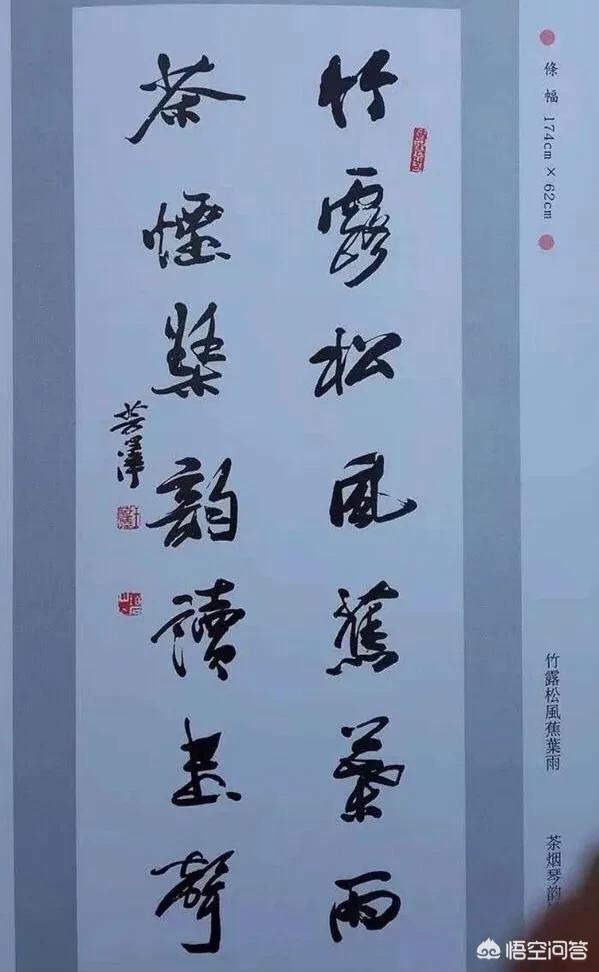 條幅 174cm×62cm
竹露松風蕉葉雨
茶烟琴韵
竹露松風蕉葉雨
茶煙琴韻讀書聲
悟空问答